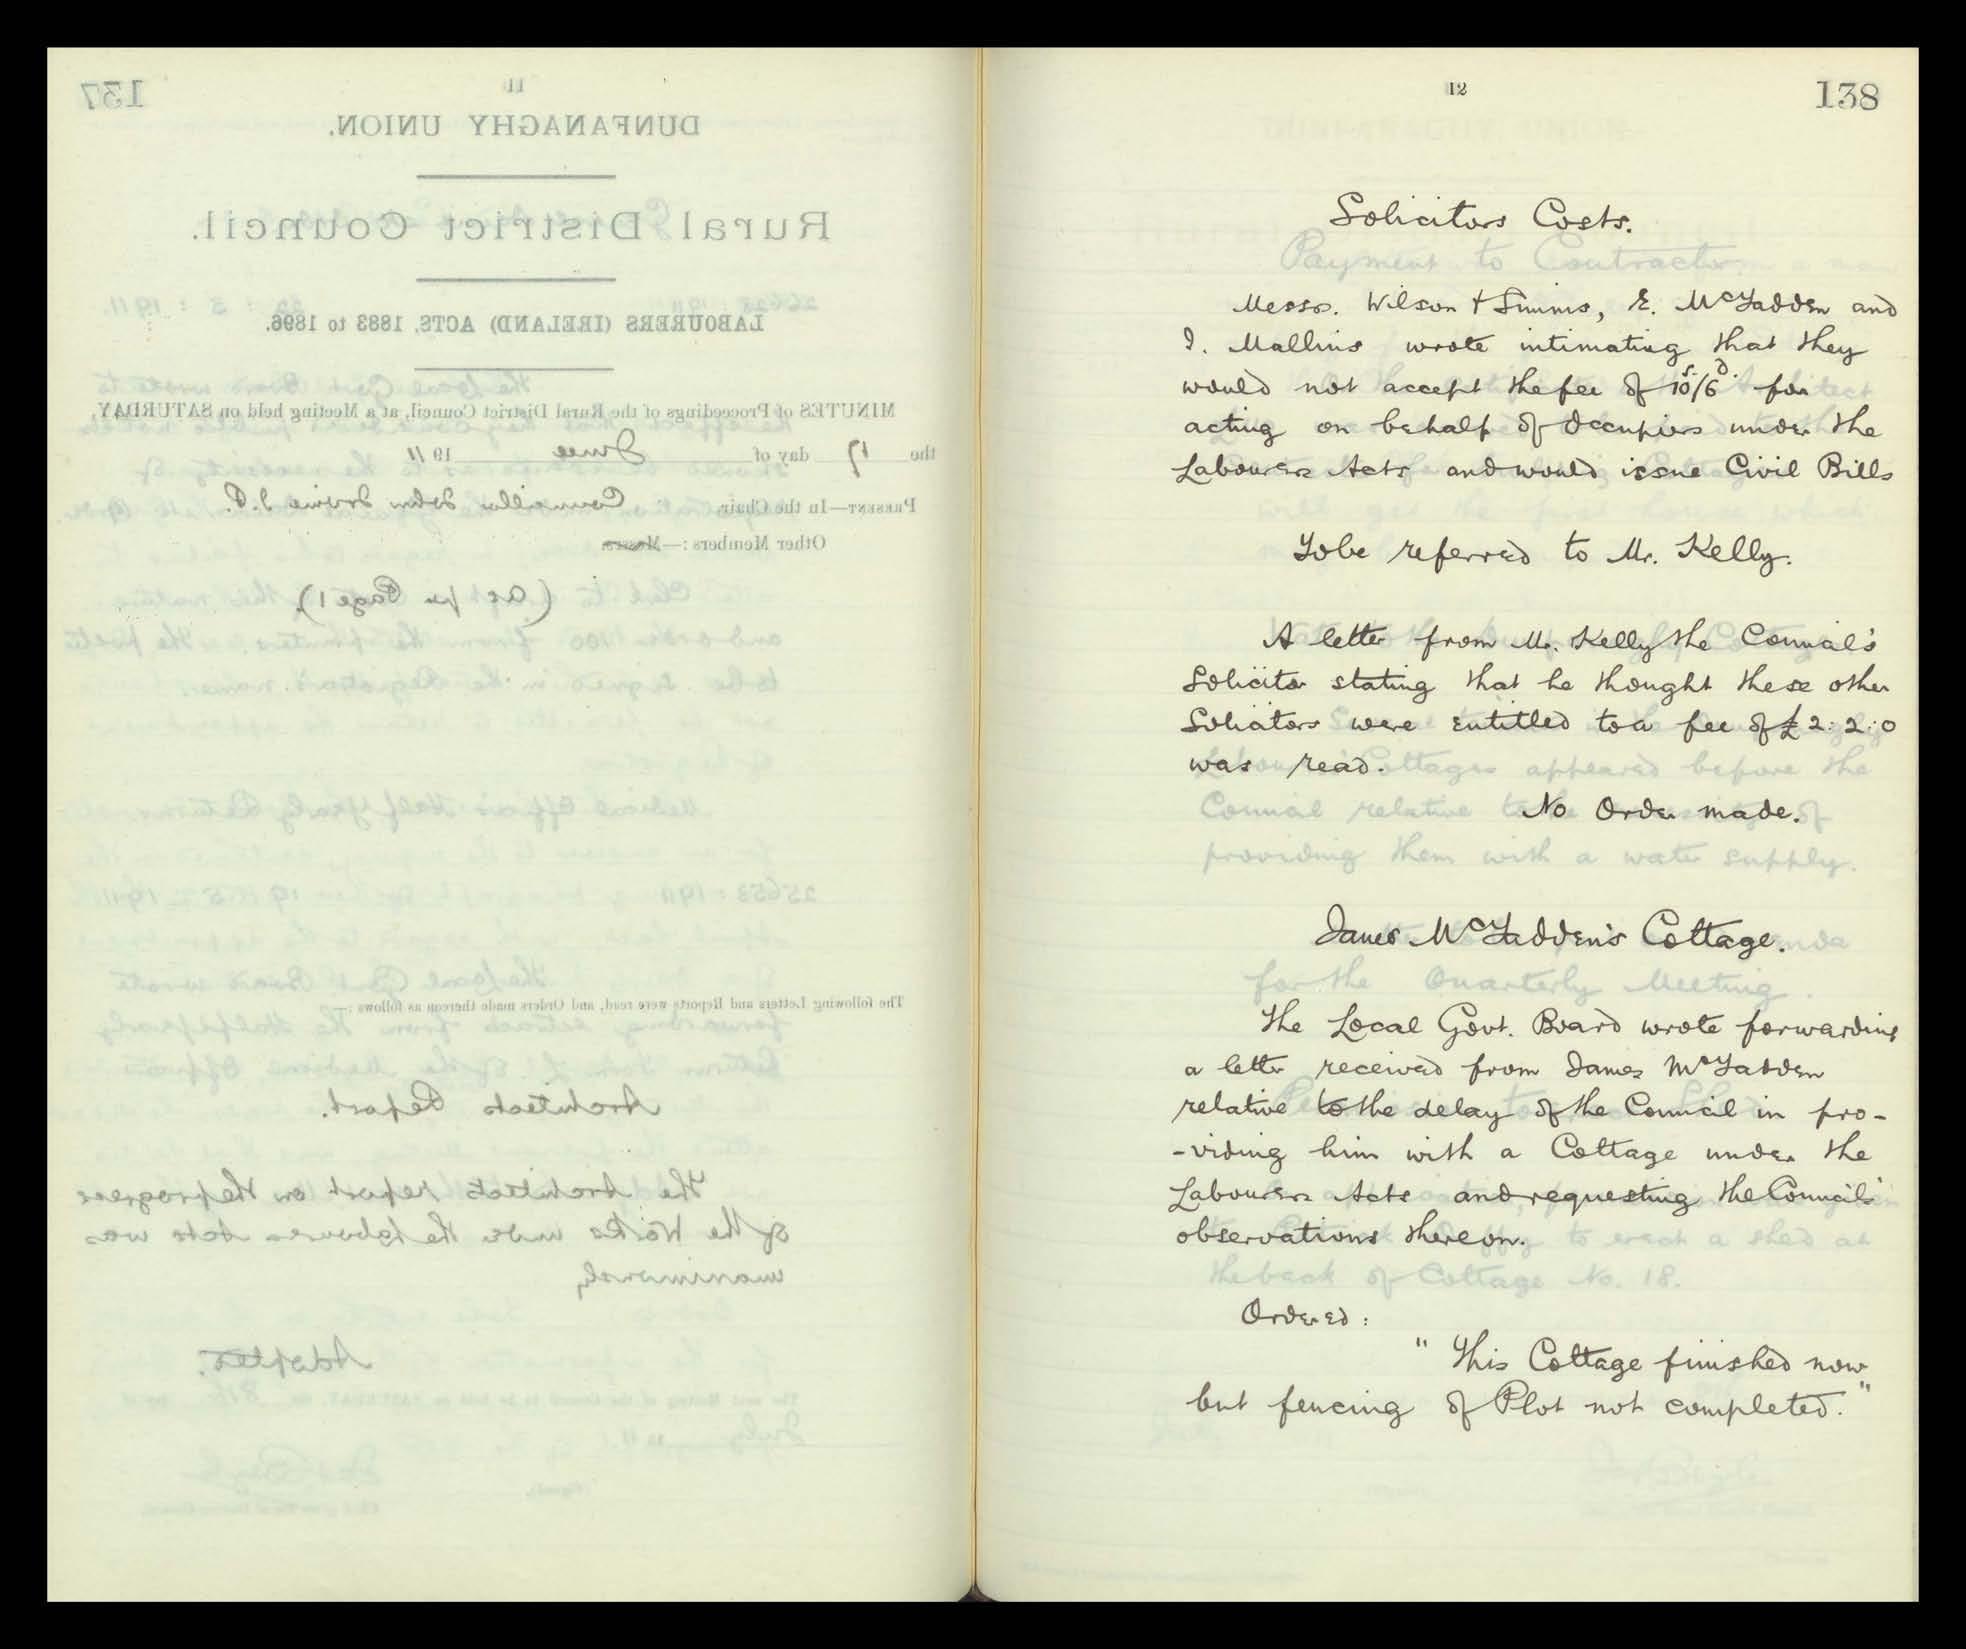 137
11
DUNFANAGHY UNION.
Rural District Council.
LABOURERS (IRELAND) ACTS, 1883 to 1896.
MINUTES of Proceedings of the Rural District Council, at a Meeting held on SATURDAY,
the 17 day of June 1911
PRESENT—In the Chair, Councillor John Irvine J.P.
Other Members:—Messrs
(as per Page 1)
The following Letters and Reports were read, and Orders made thereon as follows:—
Architects Report.
The Architects report on the progress
of the Works under the Labourers Acts was
unanimously
Adopted.
12
138
Solicitors Costs.
Messrs. Wilson & Simms, E. McFadden and
I. Mallins wrote intimating that they
would not accept the fee of 10s/6d. for
acting on behalf of Occupiers under the
Labourers Acts and would issue Civil Bills
To be referred to Mr. Kelly.
A letter from Mr. Kelly the Council's
Solicitor stating that he thought these other
Solicitors were entitled to a fee of £2:2:0
was read.
No Order made.
James McFadden's Cottage.
The Local Govt. Board wrote forwarding
a letter received from James McFadden
relative to the delay of the Council in pro-
-viding him with a Cottage under the
Labourers Acts and requesting the Council's
observations thereon.
Ordered:
"This Cottage finished now
but fencing of Plot not completed."